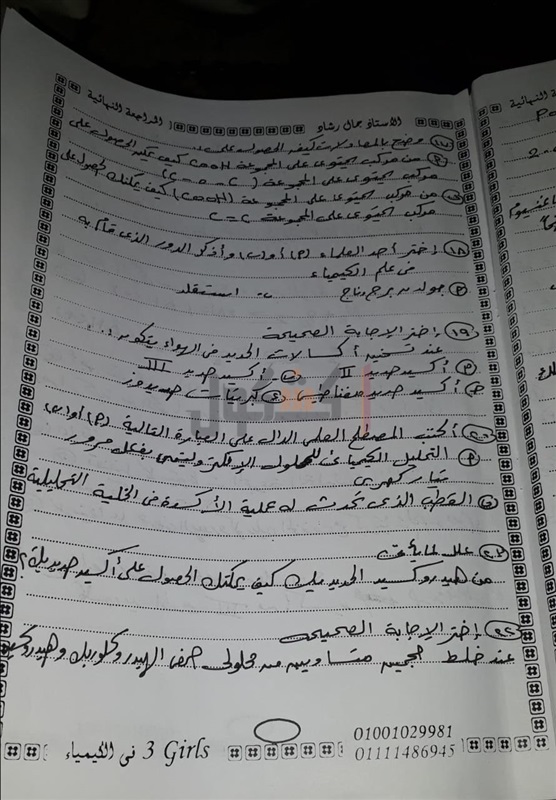 الأستاذ جمال رشاد
المراجعة النهائية
(١٧) وضح بالمعادلات كيف الحصول على ..
(P) من مركب يحتوى على المجموعة COOH كيف يمكنك الحصول على
مركب يحتوى على المجموعة (C - O - C)
(ب) من مركب يحتوى على المجموعة (COOH) كيف يمكنك الحصول على
مركب يحتوى على المجموعة C = C
(١٨) إختر أحد العلماء (P) أو (ب) واذكر الدور الذى قام به
فى علم الكيمياء
(P) جولدبرج وفاج ب- استفلد
(١٩) إختر الإجابة الصحيحة
عند تسخين أكسالات الحديد فى الهواء يتكون ...
(P) أكسيد حديد II ب- أكسيد حديد III
(ج) أكسيد حديد مغناطيسى (ء) كبريتات حديدوز
أخت كول
(٢٠) أكتب المصطلح العلمى الدال على العبارة التالية (P) أو (ب)
(P) التحليل الكيميائى للمحلول الإلكتروليتى بفعل مرور
تيار كهربى
(ب) القطب الذى تحدث له عملية الأكسدة فى الخلية التحليلية
(٢١) علل لما يأتى
من هيدروكسيد الحديديك كيف يمكنك الحصول على أكسيد حديديك؟
(٢٢) إختر الإجابة الصحيحة
عند خلط حجمين متساويين من محلولى حمض الهيدروكلوريك وهيدروكسيد
3 Girls فى الكيمياء
01001029981
01111486945